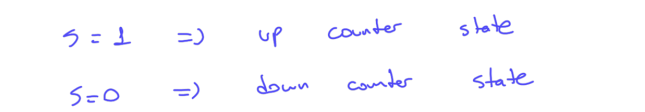 S = 1 => up counter state
S=0 => down counter state